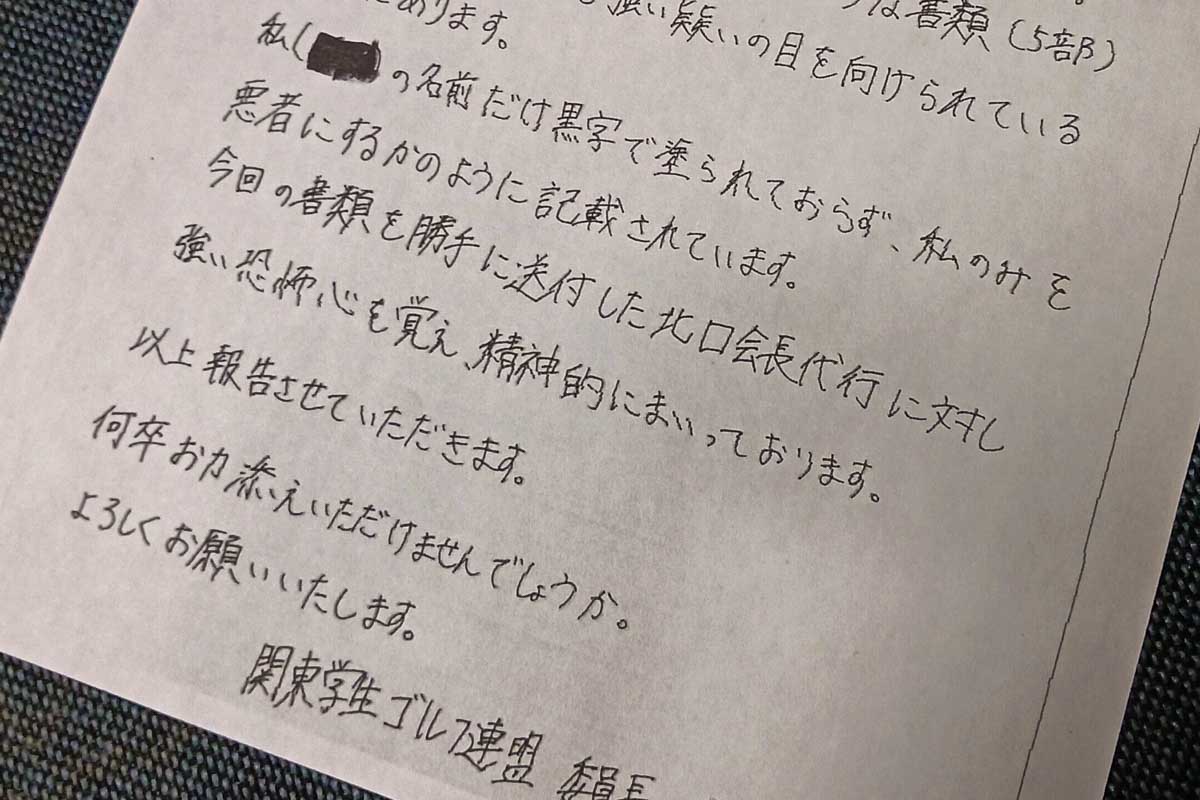 な書類(5部β)
にあります。
強い疑いの目を向けられている
私(の名前だけ黒字で塗られておらず、私のみを
悪者にするかのように記載されています。
今回の書類を勝手に送付した北口会長代行に対し
強い恐怖心を覚え、精神的にまいっております。
以上報告させていただきます。
何卒お力添えいただけませんでしょうか。
よろしくお願いいたします。
関東学生ゴルフ連盟 委員長